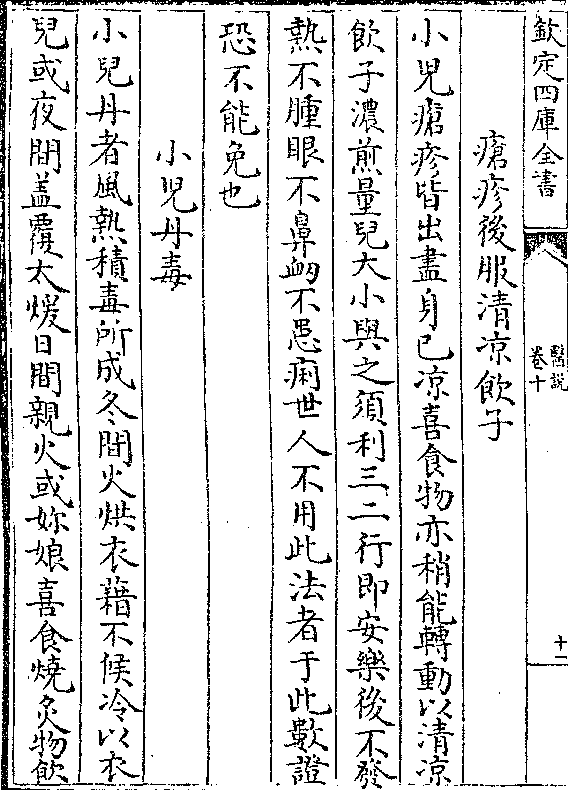 欽定四庫全書
醫說
卷十
十一
瘡疹後服清涼飲子
小兒瘡疹皆出盡身已涼喜食物亦稍能轉動以清涼
飲子濃煎量兒大小與之須利三二行即安樂後不發
熱不腫眼不鼻衂不患痢世人不用此法者于此數證
恐不能免也
小兒丹毒
小兒丹者風熱積毒所成冬間火烘衣藉不候冷以衣
兒或夜間盖覆太煖日間親火或妳娘喜食燒炙物飲